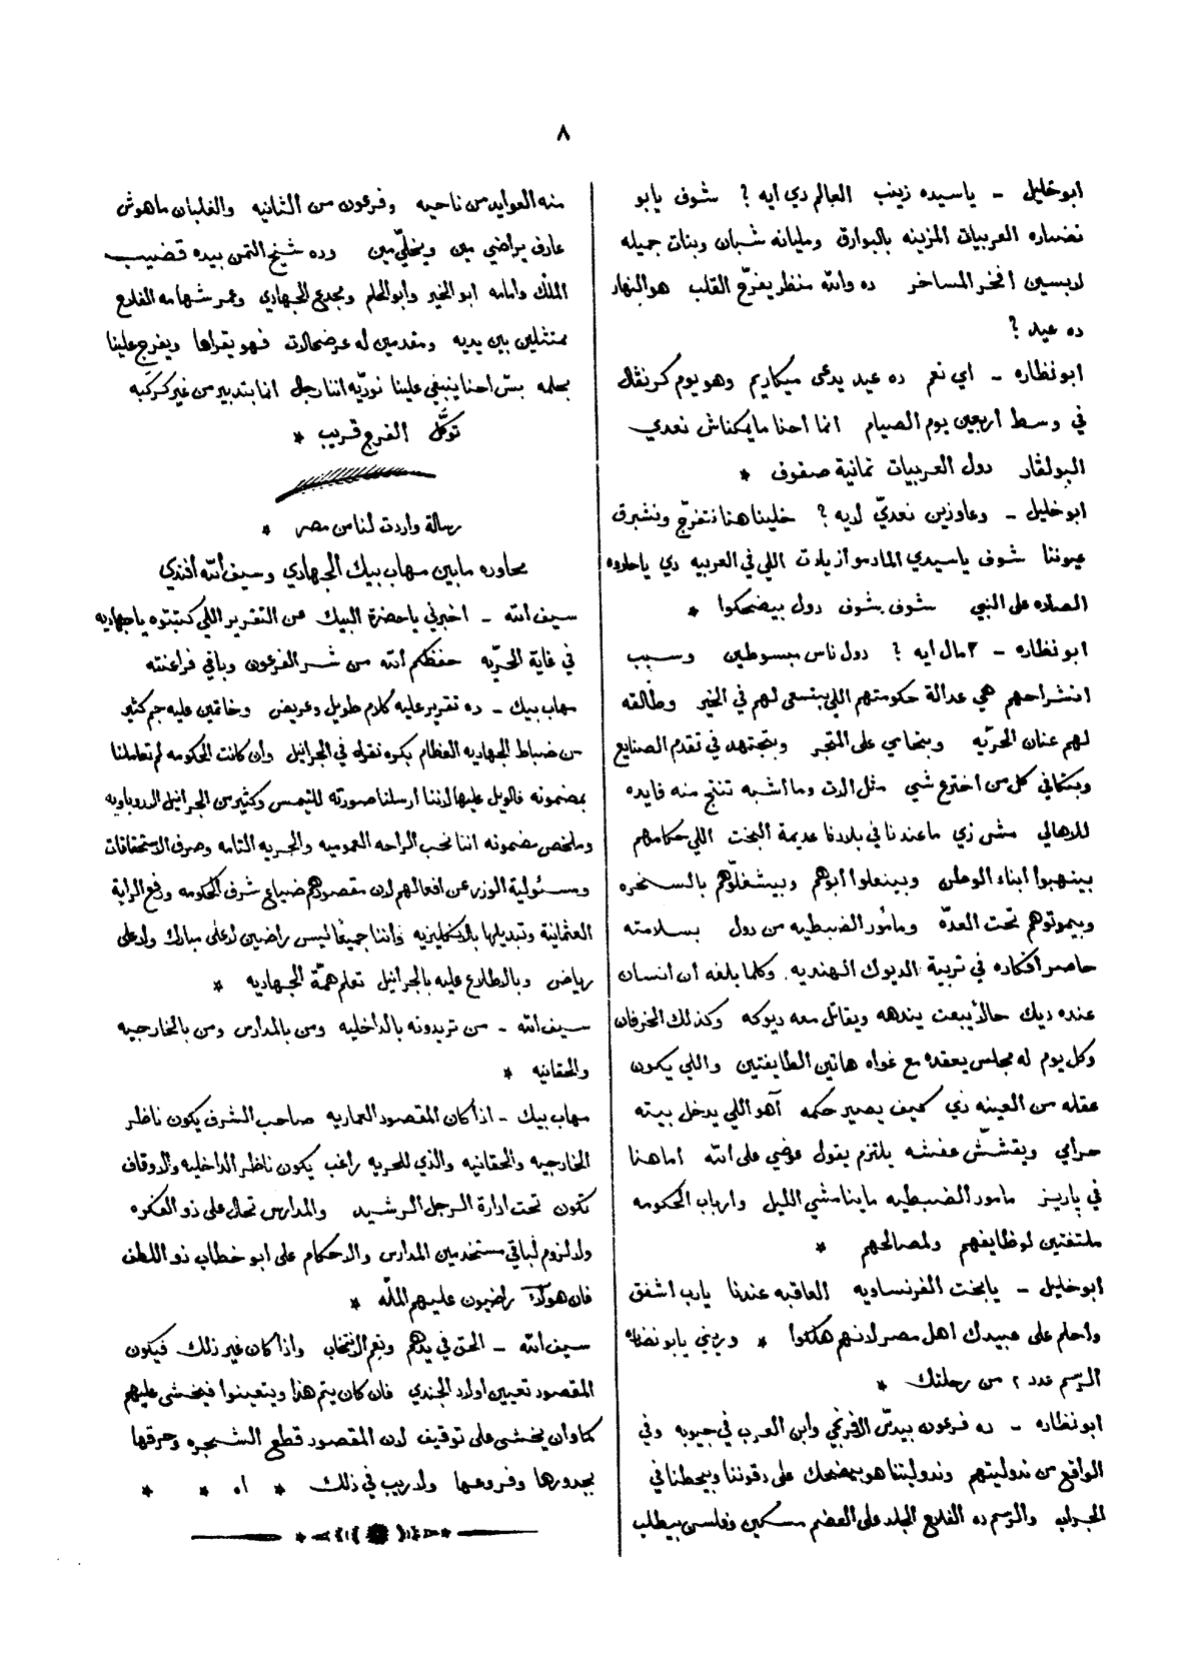 ٨
ابو خليل - ياسيده زينب العالم دي ايه ? شوف يابو
نضاره العربيات المزينه بالبوارق ومليانه شبان وبنات جميله
لابسين افخر المساخر ده والله منظر يفرّح القلب هو النهار
ده عيد ?
ابو نظاره - اي نعم ده عيد يدعى ميكاريم وهو يوم كرنڤال
في وسط اربعين يوم الصيام انما احنا ما يمكناش نعدي
البولڤار دول العربيات ثمانية صفوف *
ابو خليل - وعاوزين نعديّ لايه ? خلينا هنا نتفرّج ونشبرق
عيوننا شوف ياسيدي المادموازيلات اللي في العربيه دي ياحلاوه
الصلاه على النبي شوف شوف دول بيضحكوا *
ابو نظاره - امال ايه ? دول ناس مبسوطين وسبب
انشراحهم هي عدالة حكومتهم اللي بتسعى لهم في الخير وطالقه
لهم عنان الحرّيه وبتحامي على المتجر وبتجتهد في تقدم الصنايع
وبتكافي كل من اخترع شي مثل الات وما اشبه تنتج منه فايده
للاهالي مش زي ما عندنا في بلادنا عديمة البخت اللي حكامهم
بينهبوا ابناء الوطن وبينعلوا ابوهم وبيشغلّوهم بالسخره
وبيموتوهم تحت العدّه ومأمور الضبطيه من دول بسلامته
حاصر أفكاره في تربية الديوك الهنديه. وكلما بلغه أن أنسان
عنده ديك حالاً يبعت يندهه ويقاتل معه ديوكه وكذلك الخرفان
وكل يوم له مجلس يعقده مع غواه هاتين الطايفتين واللي يكون
عقله من العينه دي كيف يصير حكمه آهو اللي يدخل بيته
حرامي ويقشّش عفشه يلتزم يقول عوضي على الله اما هنا
في باريز مامور الضبطيه ما ينامشي الليل وارباب الحكومه
ملتفتين لوظايفهم ولمصالحهم *
ابو خليل - يا بخت الفرنساويه العاقبه عندنا يارب اشفق
واحلم على عبيدك اهل مصر لانهم هلكوا * وريني يابو نضاره
الرسم عدد ٢ من رحلتك *
ابو نظاره - ده فرعون بيدسّ الافرنجي وابن العرب في جيوبه وفي
الواقع من ندوليتهم وندوليتنا هو بيضحك على دقوننا وبيحطنا في
الجراب والرسم ده الفلاح الجلد على العضم مسكين وفلس بيطلب
منه العوايد من ناحيه وفرعون من الثانيه والغلبان ماهوش
عارف يراضي مين ويخليّ مين وده شيخ التمن بيده قضيب
الملك وامامه ابو الخير وابو الحلم ومجدع الجهادي وعمر شهامه الفلاح
ممتثلين بين يديه ومقدمين له عرضحالات فهو يقراها ويفرج علينا
بحلمه بسّ احنا ينبغي علينا نورّيه اننا رجال انما بتدبير من غير كركبه
توكّل الفرج قريب *
رسالة واردت لنا من مصر *
محاوره مابين مهاب بيك الجهادي وسيف الله أفندي
سيف الله - اخبرني ياحضرة البيك عن التقرير اللي كتبتوه ياجهاديه
في غاية الحرّيه حفظكم الله من شر الفرعون وباقي فراعنته
مهاب بيك - ده تقرير عليه كلام طويل وعريض وخاتمين عليه جم كثير
من ضباط الجهاديه العظام بكره نقراه في الجرانيل وأن كانت الحكومه لم تعاملنا
بمضمونه فالويل عليها لاننا ارسلنا صورته للتيمس وكثير من الجرانيل الاوروباويه
وملخص مضمونه اننا نحب الراحه العموميه والحريه التامه وصرف الاستحقاقات
ومسئولية الوزر عن افعالهم لان مقصودهم ضياع شرف الحكومه ورفع الراية
العثمانية وتبديلها بالانكليزيه وأننا جميعًا ليس راضين لا على مبارك ولا على
رياض وبالاطلاع عليه بالجرانيل تعلم همّة الجهاديه *
سيف الله - من تريدونه بالداخليه ومن بالمدارس ومن بالخارجيه
والحقانيه *
مهاب بيك - اذا كان المقصود العماريه صاحب الشرف يكون ناظر
الخارجيه والحقانيه والذي للحريه راغب يكون ناظر الداخليه والاوقاف
تكون تحت ادارة الرجل الرشيد والمدارس تحال على ذو الفكره
ولا لزوم لباقي مستخدمين المدارس والاحكام على ابو خطاب ذو اللطف
فان هولاء راضيون عليهم الملّه *
سيف الله - الحق في يدهم ونعم الانتخاب واذا كان غير ذلك فيكون
المقصود تعيين اولاد الجندي فان كان يتم هذا ويتعينوا فيخشى عليهم
كما وأن يخشى على توقيف لان المقصود قطع الشجره وحرقها
بجدورها وفروعها ولا ريب في ذلك * اه * *